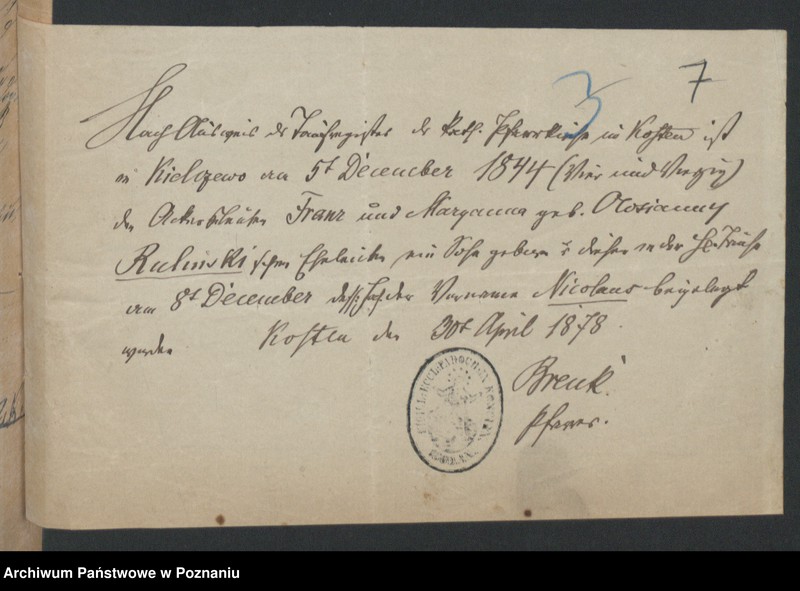 3 7
Nach Ausweis des Taufregisters der kath. Pfarrkirche in Kosten ist
in Kielczewo am 5t December 1844 (Vier und Vierzig)
den Ackersleuten Franz und Maryanna geb.
Rulinski schen Eheleuten ein Sohn geboren & diesem in der Taufe
am 8t December der Vorname Nicolaus beigelegt
worden Kosten den 30t April 1878.
Brenk.
Pfarrer.
Archiwum Państwowe w Poznaniu